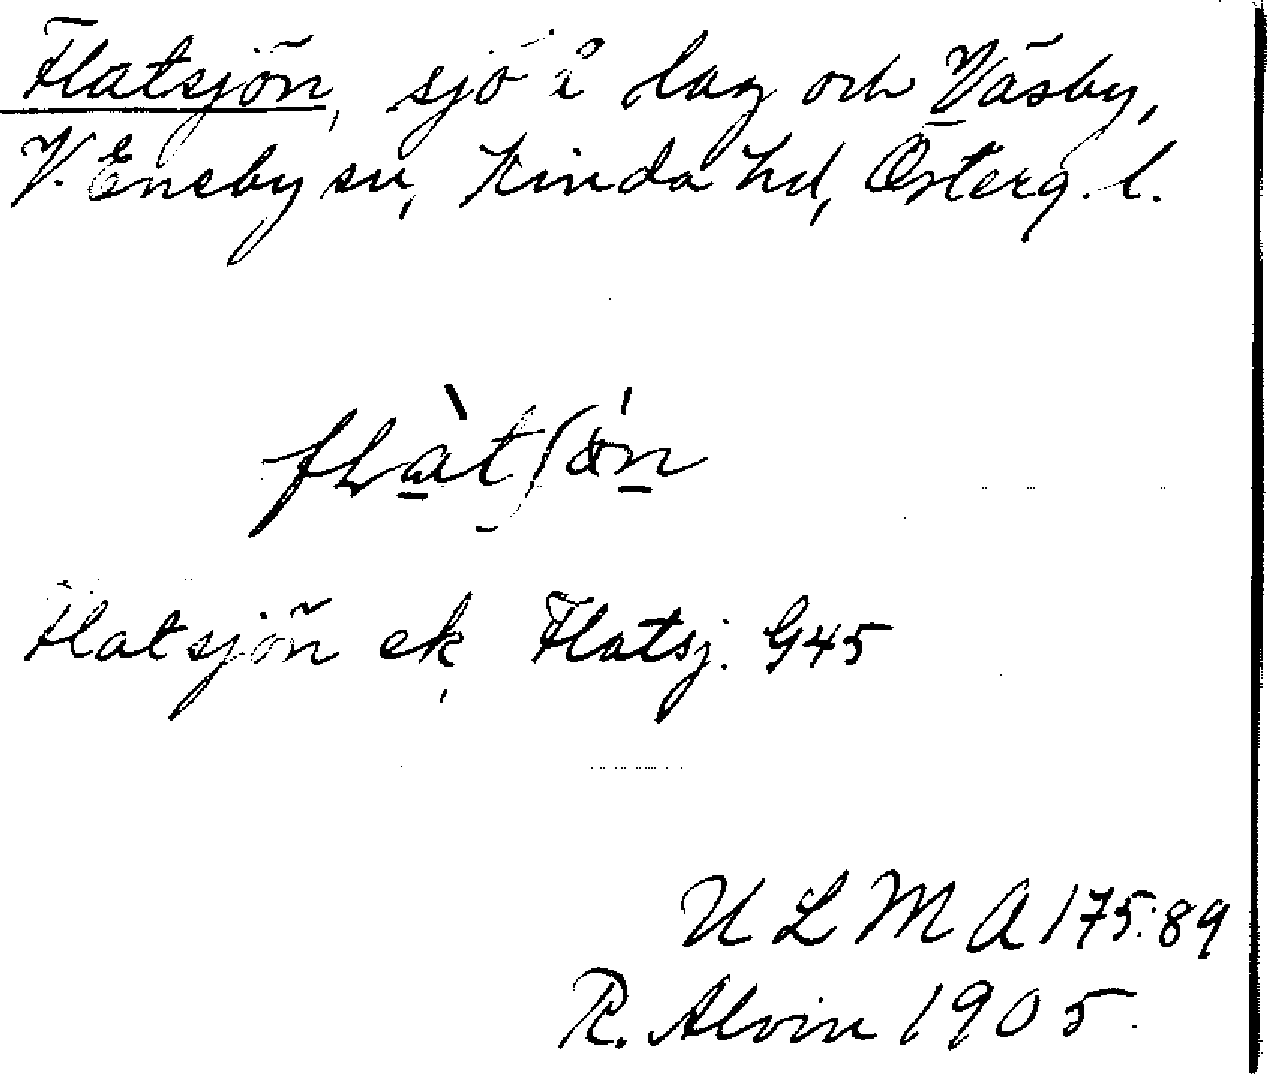 Flatsjön, sjö i lag och Väsby,
V. Eneby sn, Kinda hd, Österg. l.
Flatsjön ek, Flatsj. G45
ULMA 175:89
R. Alvin 1905.